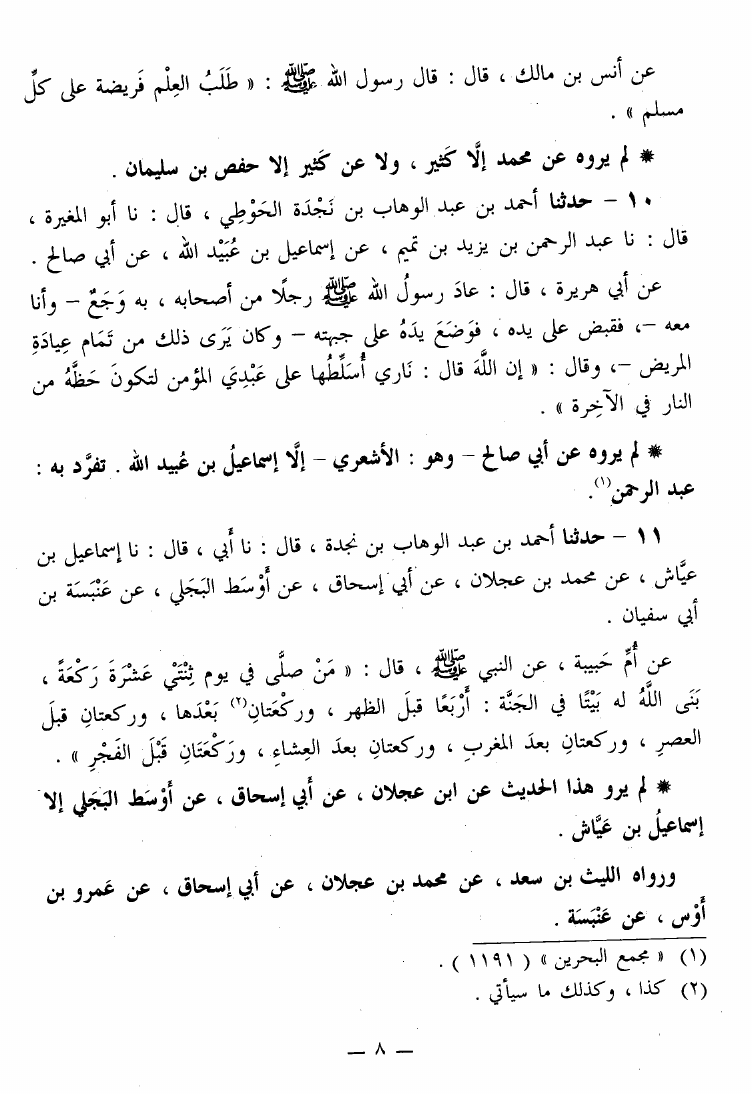 عن أنس بن مالك ، قال : قال رسول الله ﷺ : « طَلَبُ العِلْم فَريضة على كلِّ
مسلم » .
* لم يروه عن محمد إلَّا كَثير ، ولا عن كَثير إلا حفص بن سليمان .
١٠ – حدثنا أحمد بن عبد الوهاب بن نَجْدَة الحَوْطِي ، قال : نا أبو المغيرة ،
قال : نا عبد الرحمن بن يزيد بن تميم ، عن إسماعيل بن عُبَيْد الله ، عن أبي صالح .
عن أبي هريرة ، قال : عادَ رسولُ الله ﷺ رجلًا من أصحابه ، به وَجَعٌ – وأنا
معه –، فقبض على يده ، فوَضَعَ يدَهُ على جبهته – وكان يَرَى ذلك من تَمَام عِيادَةِ
المريض –، وقال : « إن اللَّهَ قال : نَاري أُسَلِّطُها على عَبْدِيَ المؤمن لتكونَ حَظَّهُ من
النار في الآخِرة » .
* لم يروه عن أبي صالح – وهو : الأشعري – إلَّا إسماعيلُ بن عُبيد الله . تفرَّد به :
عبد الرحمن(١).
١١ – حدثنا أحمد بن عبد الوهاب بن نجدة ، قال : نا أَبي ، قال : نا إسماعيل بن
عيَّاش ، عن محمد بن عجلان ، عن أبي إسحاق ، عن أَوْسَط البَجَلي ، عن عَنْبَسَة بن
أبي سفيان .
عن أُمِّ حَبيبة ، عن النبي ﷺ ، قال : « مَنْ صلَّى في يوم ثِنْتَيْ عَشْرَةَ رَكْعَةً ،
بَنَى اللَّهُ له بَيْتًا في الجَنَّة : أَرْبَعًا قبلَ الظهر ، وركْعَتانِ(٢) بَعْدَها ، وركعتانِ قبلَ
العصرِ ، وركعتانِ بعدَ المغربِ ، وركعتانِ بعدَ العِشاءِ ، ورَكْعَتَانِ قَبْلَ الفَجْرِ » .
* لم يرو هذا الحديث عن ابن عجلان ، عن أبي إسحاق ، عن أَوْسَط البَجَلي إلا
إسماعيلُ بن عَيَّاش .
ورواه الليث بن سعد ، عن محمد بن عجلان ، عن أبي إسحاق ، عن عَمرو بن
أَوْس ، عن عَنْبَسَة .
(١) « مجمع البحرين » ( ١١٩١ ) .
(٢) كذا ، وكذلك ما سيأتي .
— ٨ —